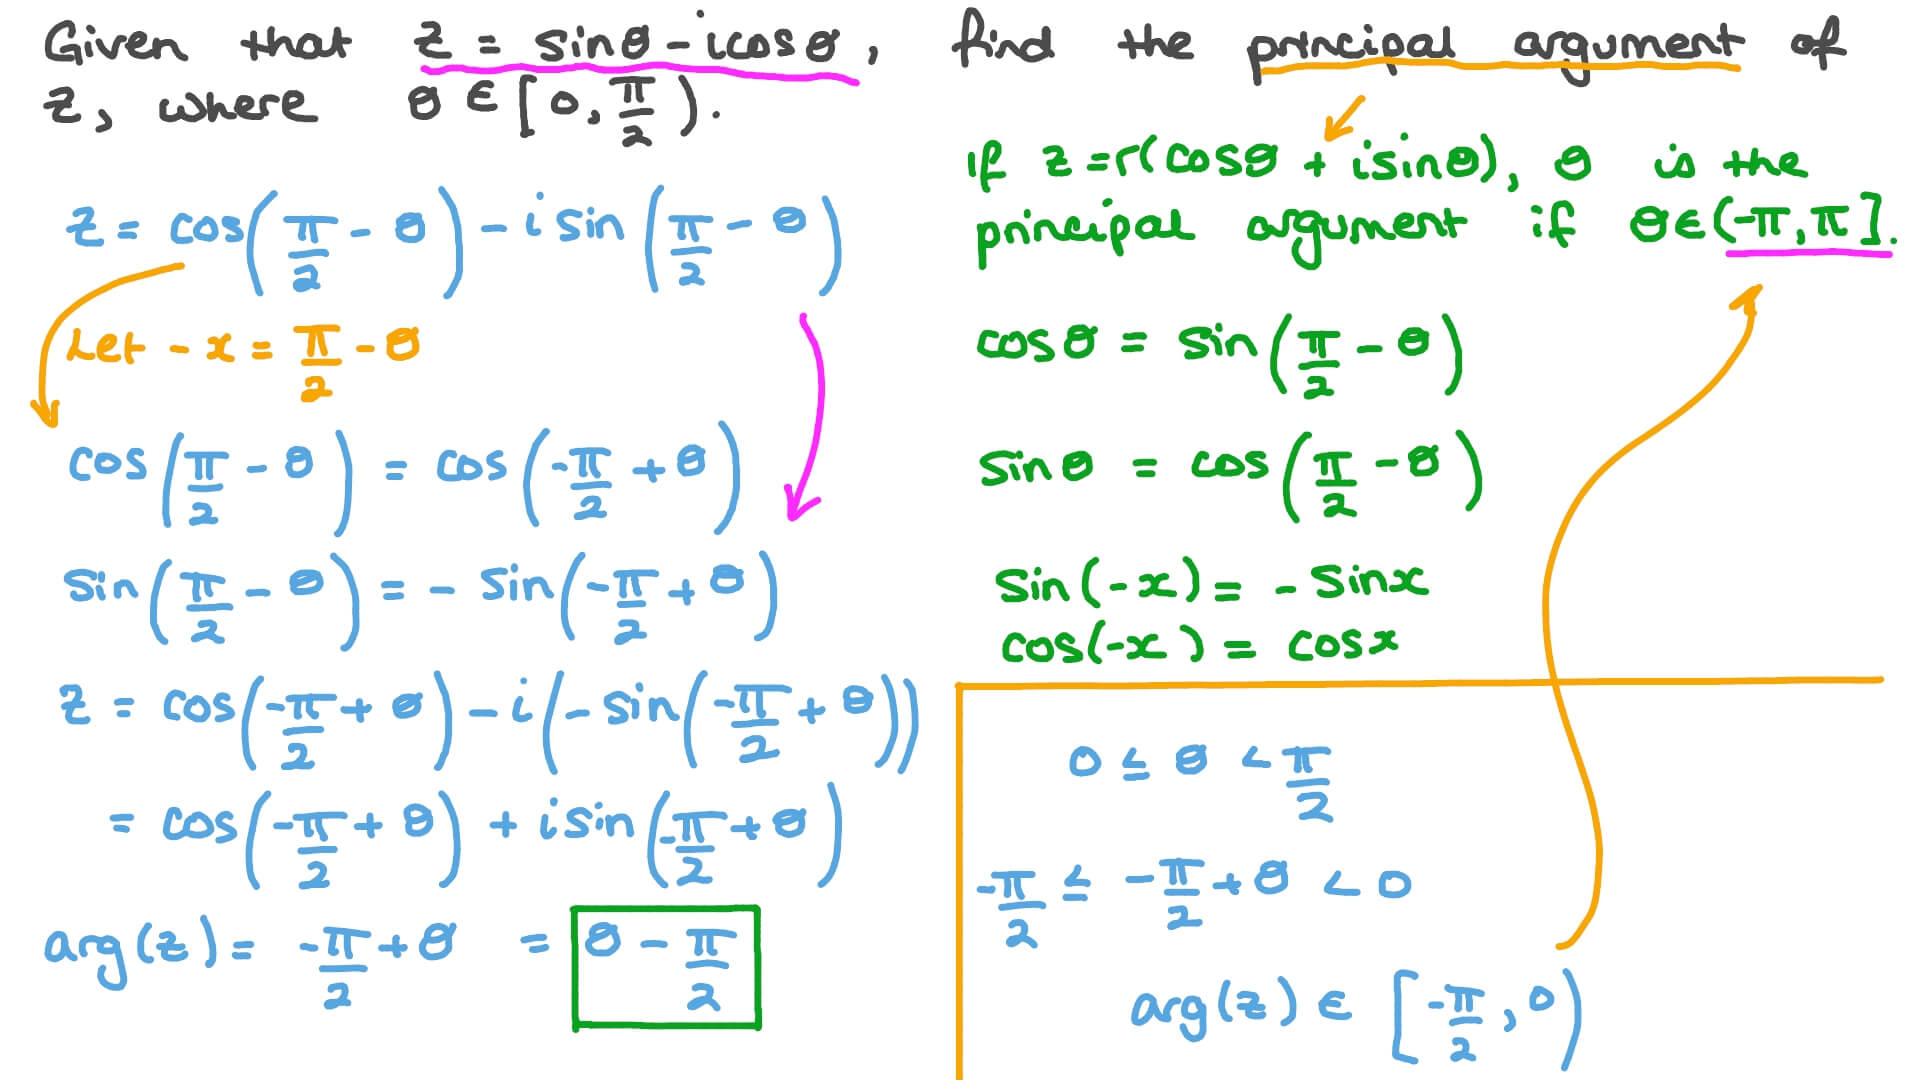 Given that z = sinθ - icosθ, find the principal argument of
z, where θ ∈ [0, π/2).
If z = r(cosθ + isinθ), θ is the
principal argument if θ∈(-π, π].
z = cos(π/2 - θ) - i sin(π/2 - θ)
Let -x = π/2 - θ
cos(π/2 - θ) = cos(-π/2 + θ)
sin(π/2 - θ) = - sin(-π/2 + θ)
z = cos(-π/2 + θ) - i(-sin(-π/2 + θ))
= cos(-π/2 + θ) + isin(-π/2 + θ)
arg(z) = -π/2 + θ = θ - π/2
cosθ = sin(π/2 - θ)
sinθ = cos(π/2 - θ)
sin(-x) = - sinx
cos(-x) = cosx
0 ≤ θ < π/2
-π/2 ≤ -π/2 + θ < 0
arg(z) ∈ [-π/2, 0)